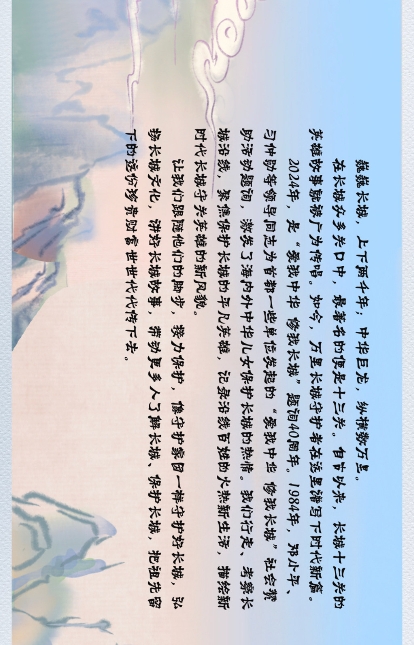 巍巍长城，上下两千年；中华巨龙，纵横数万里。
在长城众多关口中，最著名的便是十三关。自古以来，长城十三关的
英雄故事就被广为传唱。如今，万里长城守护者在这里谱写下时代新篇。
2024年，是“爱我中华 修我长城”题词40周年。1984年，邓小平、
习仲勋等领导同志为首都一些单位发起的“爱我中华 修我长城”社会赞
助活动题词，激发了海内外中华儿女保护长城的热情。我们行走、考察长
城沿线，聚焦保护长城的平凡英雄，记录沿线百姓的火热新生活，描绘新
时代长城守关英雄的新风貌。
让我们跟随他们的脚步，接力保护，像守护家园一样守护好长城，弘
扬长城文化，讲好长城故事，带动更多人了解长城、保护长城，把祖先留
下的这份珍贵财富世世代代传下去。